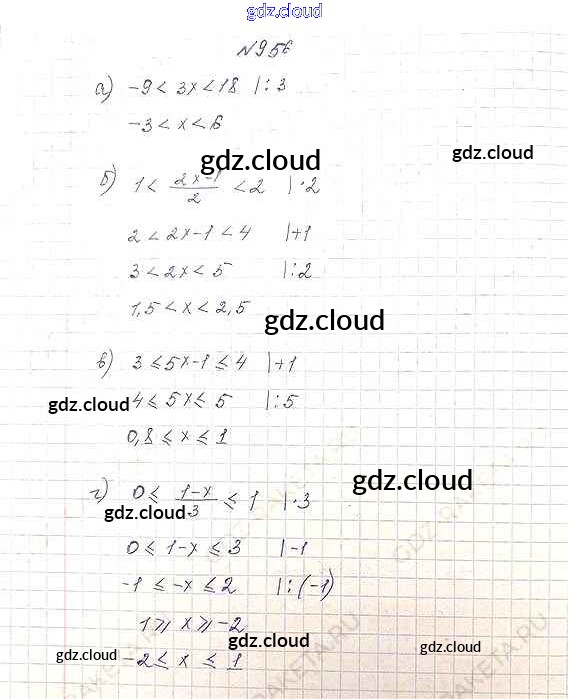 gdz.cloud
№956
а) -9 < 3x < 18 |:3
-3 < x < 6
gdz.cloud gdz.cloud
б) 1 < (2x-1)/2 < 2 |·2
2 < 2x-1 < 4 |+1
3 < 2x < 5 |:2
1,5 < x < 2,5
gdz.cloud
в) 3 ⩽ 5x-1 ⩽ 4 |+1
gdz.cloud 4 ⩽ 5x ⩽ 5 |:5
0,8 ⩽ x ⩽ 1
gdz.cloud
г) 0 ⩽ (1-x)/3 ⩽ 1 |·3
gdz.cloud
0 ⩽ 1-x ⩽ 3 |-1
-1 ⩽ -x ⩽ 2 |:(-1)
1 ⩾ x ⩾ -2
gdz.cloud gdz.cloud
gdz.cloud -2 ⩽ x ⩽ 1
GDZ-RAKETA.RU